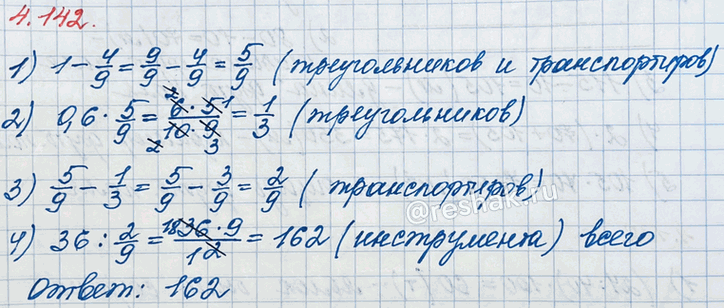 4.142.
1) 1 - 4/9 = 9/9 - 4/9 = 5/9 (треугольников и транспортиров)
2) 0,6 · 5/9 = 6 · 5/10 · 9 = 1/3 (треугольников)
3) 5/9 - 1/3 = 5/9 - 3/9 = 2/9 (транспортиров)
@reshak.ru
4) 36 : 2/9 = 36 · 9/12 = 162 (инструмента) всего
Ответ: 162